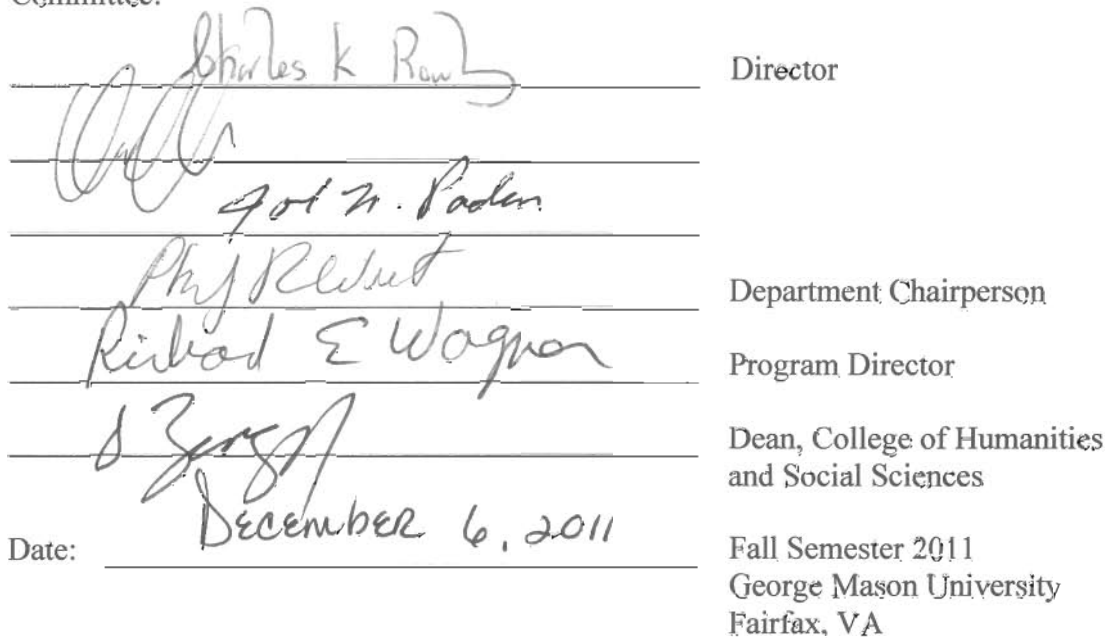 Committee:
Charles K Rowley Director
N. Paden
Department Chairperson
Richard E Wagner Program Director
Dean, College of Humanities
and Social Sciences
Date: December 6, 2011 Fall Semester 2011
George Mason University
Fairfax, VA